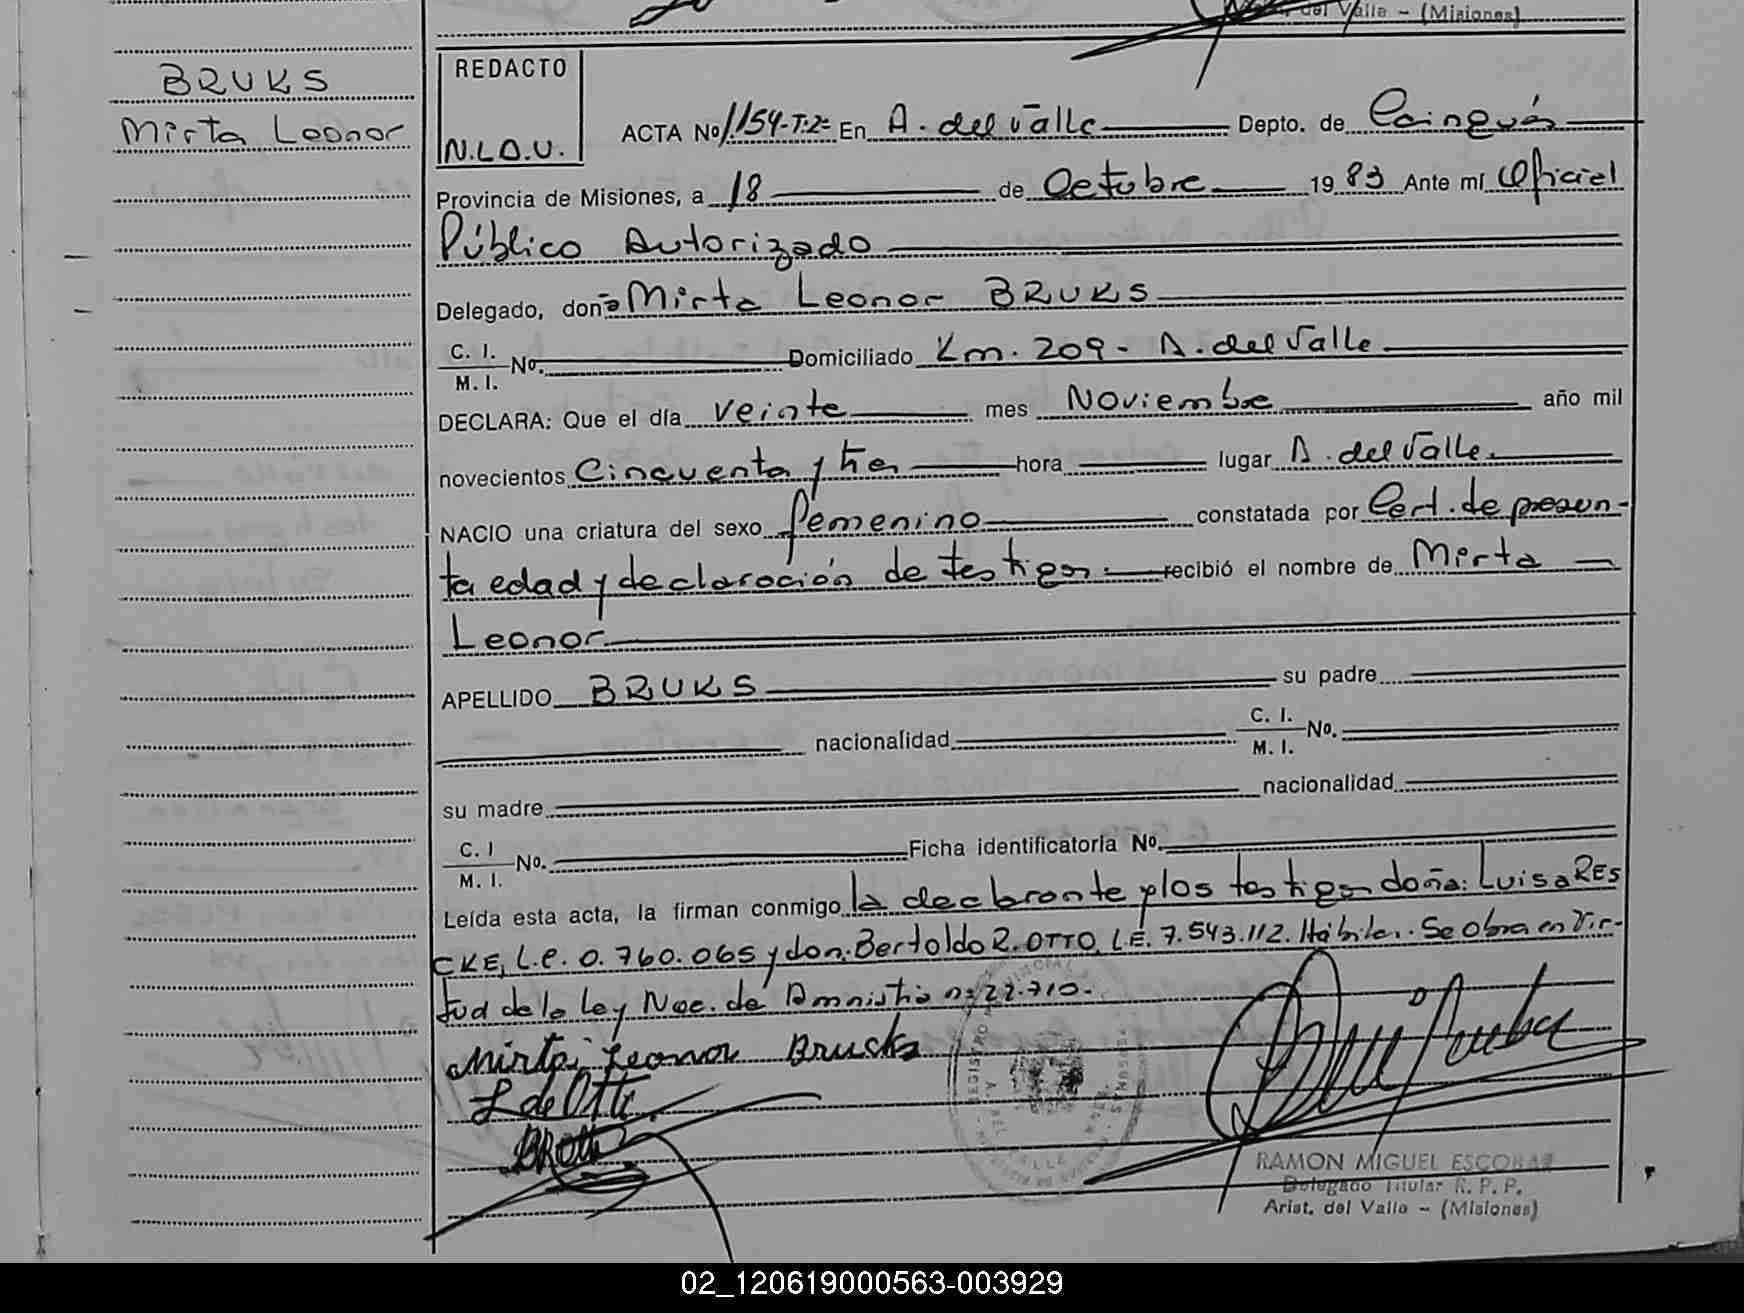 del Valle - (Misiones)
BRUKS
Mirta Leonor
REDACTO
N.L.O.U.
ACTA Nº 1154-T.2º En A. del Valle Depto. de Cainguás
Provincia de Misiones, a 18 de Octubre 1983 Ante mí Oficial
Público Autorizado
Delegado, doña Mirta Leonor BRUKS
C. I.
M. I. Nº. Domiciliado Km. 209 - A. del Valle
DECLARA: Que el día veinte mes Noviembre año mil
novecientos Cincuenta y tres hora lugar A. del Valle.
NACIO una criatura del sexo femenino constatada por Cert. de presun-
ta edad y declaración de testigos. recibió el nombre de Mirta
Leonor
APELLIDO BRUKS su padre
nacionalidad C. I.
M. I. Nº.
su madre nacionalidad
C. I
M. I. Nº. Ficha identificatoria Nº.
Leída esta acta, la firman conmigo la declarante y los testigos doña: Luisa RES
CKE, L.C. 0.760.065 y don: Bertoldo R. OTTO, L.E. 7.543.112. Hábiles. Se obra en vir-
tud de la Ley Nac. de Amnistía nº 22.710.
Mirta Leonor Brucks
L de Otto
BROtto
RAMON MIGUEL ESCOBAR
Delegado Titular R. P. P.
Arist. del Valle - (Misiones)
02_120619000563-003929